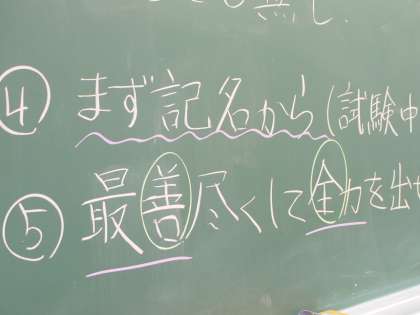 も無し.
④ まず記名から(試験中
⑤ 最善尽くして全力を出せ